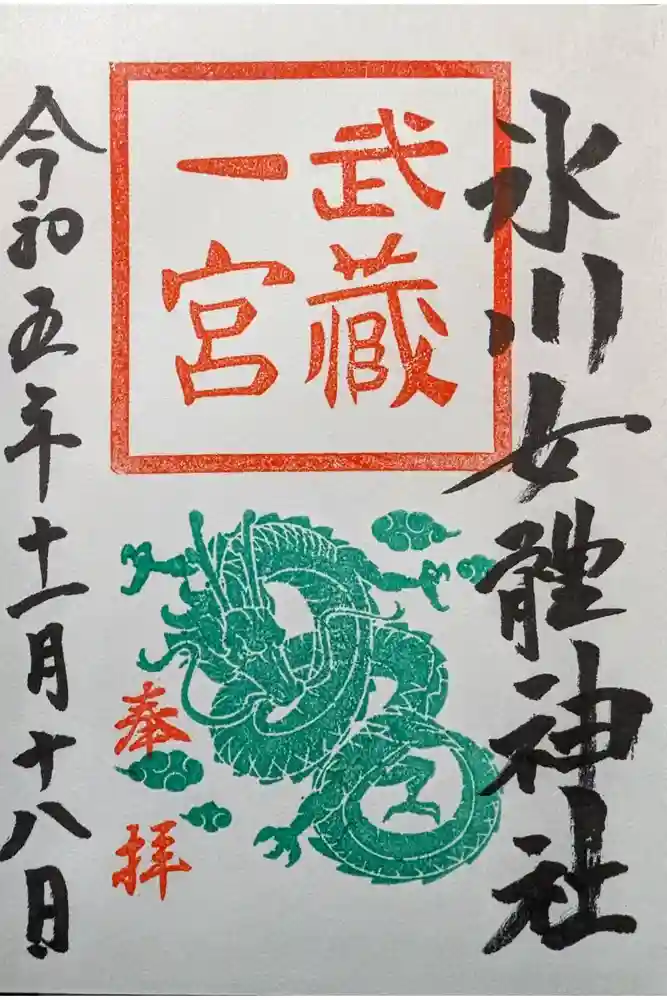 氷川女體神社
武蔵
一宮
奉拝
令和五年十一月十八日